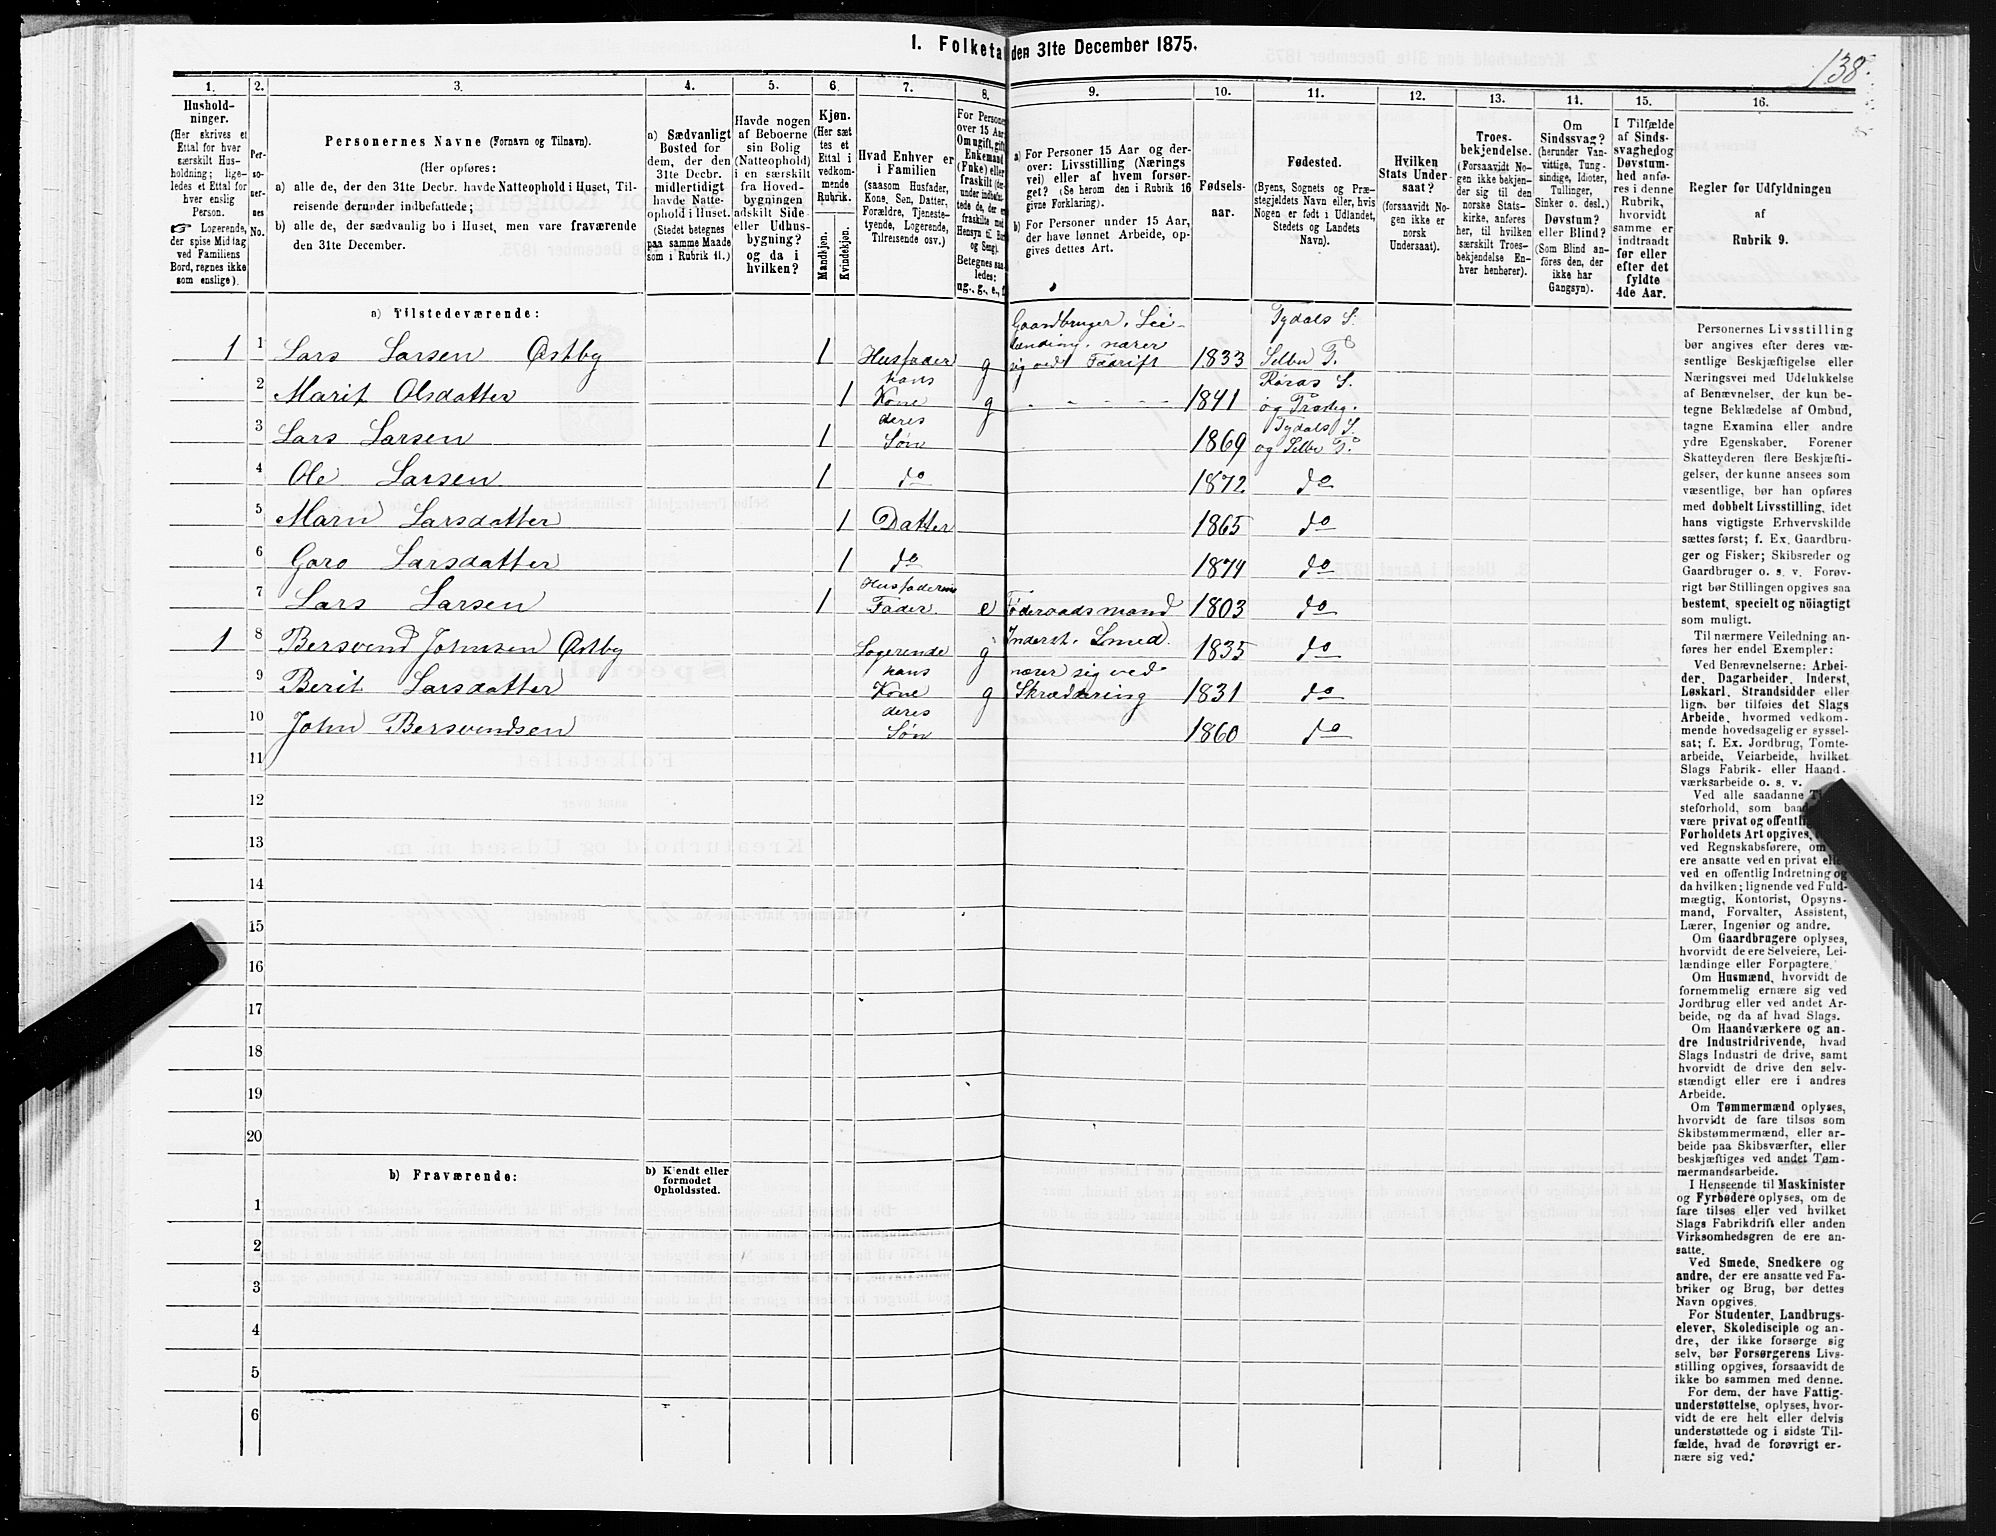 138.
1. Folketa den 31te December 1875.
1. 2. 3. 4. 5. 6. 7. 8. 9. 10. 11. 12. 13. 14. 15. 16.
Hushold-
ninger.
(Her skrives et
Ettal for hver
særskilt Hus-
holdning; lige-
ledes et Ettal for
hver enslig
Person.
☞ Logerende,
der spise Middag
ved Familiens
Bord, regnes ikke
som enslige).
Per-
so-
ner-
nes
No.
Personernes Navne (Fornavn og Tilnavn).
(Her opføres:
a) alle de, der den 31te Decbr. havde Natteophold i Huset, Til-
reisende derunder indbefattede;
b) alle de, der sædvanlig bo i Huset, men vare fraværende
den 31te December.
a) Sædvanligt
Bosted for
dem, der den
31te Decbr.
midlertidigt
havde Natte-
ophold i Huset.
(Stedet betegnes
paa samme Maade
som i Rubrik 11.)
Havde nogen
af Beboerne
sin Bolig
(Natteophold)
i en særskilt
fra Hoved-
bygningen
adskilt Side-
eller Udhus-
bygning?
og da i
hvilken?
Kjøn.
(Her sæt
tes et
Ettal i
vedkom-
mende
Rubrik.
Mandkjøn.
Kvindekjøn.
Hvad Enhver er
i Familien
(saasom Husfader,
Kone, Søn, Datter,
Forældre, Tjeneste-
tyende, Logerende,
Tilreisende osv.)
For Personer
over 15 Aar:
Om ugift, gift,
Enkemand
(Enke) eller
fraskilt
Betegnes saa-
ledes:
ug., g., e., f.
a) For Personer 15 Aar og der-
over: Livsstilling (Nærings
vei) eller af hvem forsør-
get? (Se herom den i Rubrik 16
givne Forklaring).
b) For Personer under 15 Aar,
der have lønnet Arbeide, op-
gives dettes Art.
Fødsels-
aar.
Fødested.
(Byens, Sognets og Præ-
stegjeldets Navn eller, hvis
Nogen er født i Udlandet,
Stedets og Landets
Navn).
Hvilken
Stats Under-
saat?
(forsaavidt No-
gen ikke er
norsk
Undersaat).
Troes-
bekjendelse.
(Forsaavidt No-
gen ikke bekjen-
der sig til den
norske Stats-
kirke, anføres
her, til hvilken
særskilt Troes-
bekjendelse En-
hver henhører).
Om
Sindssvag?
(herunder Van-
vittige, Tung-
sindige, Idioter,
Tullinger,
Sinker o. desl.)
Døvstum?
eller Blind?
(Som Blind an-
føres den, der
ikke har
Gangsyn).
I Tilfælde
af Sinds-
svaghed og
Døvstum-
hed anfø-
res i denne
Rubrik,
hvorvidt
samme er
indtraadt
før eller
efter det
fyldte
4de Aar.
Regler for Udfyldningen
af
Rubrik 9.
a) Tilstedeværende:
1 1 Lars Larsen Østby 1 Husfader g Gaardbruger. Lei-
lænding. nærer
sig ved Fædrift 1833 Tydals S.
Selbu P.
2 Marit Olsdatter 1 hans
Kone g 1841 Røraas S.
og Præstg.
3 Lars Larsen 1 deres
Søn 1869 Tydals S.
og Selbu P.
4 Ole Larsen 1 do 1872 do
5 Marn Larsdatter 1 Datter 1865 do
6 Goro Larsdatter 1 do 1874 do
7 Lars Larsen 1 Husfaderens
Fader. e Føderaadsmand 1803 do
1 8 Bersvend Johnsen Østby Logerende g Inderst. Smed. 1835 do
9 Berit Larsdatter hans
Kone g nærer sig ved
Skræddering 1831 do
10 John Bersvendsen deres
Søn 1860 do
11
12
13
14
15
16
17
18
19
20
b) Fraværende:
b) Kjendt eller
formodet
Opholdssted.
1
2
3
4
5
6
Personernes Livsstilling
bør angives efter deres væ-
sentlige Beskjæftigelse eller
Næringsvei med Udelukkelse
af Benævnelser, der kun be-
tegne Beklædelse af Ombud,
tagne Examina eller andre
ydre Egenskaber. Forener
Skatteyderen flere Beskjæfti-
gelser, der kunne ansees som
væsentlige, bør han opføres
med dobbelt Livsstilling, idet
hans vigtigste Erhvervskilde
sættes først; f. Ex. Gaardbru-
ger og Fisker; Skibsreder og
Gaardbruger o. s. v. Forøv-
rigt bør Stillingen opgives saa
bestemt, specielt og nöiagtigt
som muligt.
Til nærmere Veiledning an-
føres her endel Exempler:
Ved Benævnelserne: Arbei-
der, Dagarbeider, Inderst,
Løskarl, Strandsidder eller
lign. bør tilføies det Slags
Arbeide, hvormed vedkom-
mende hovedsagelig er syssel-
sat; f. Ex. Jordbrug, Tomte-
arbeide, Veiarbeide, hvilket
Slags Fabrik- eller Haand-
værksarbeide o. s. v.
Ved alle saadanne
steforhold, som
være privat og
Forholdets Art opgives,
ved Regnskabsførere, om
ere ansatte ved en privat
ved en offentlig Indretning og
da hvilken; lignende ved Fuld-
mægtig, Kontorist, Opsyns-
mand, Forvalter, Assistent,
Lærer, Ingeniør og andre.
Om Gaardbrugere oplyses,
hvorvidt de ere Selveiere, Lei-
lændinge eller Forpagtere.
Om Husmænd, hvorvidt de
fornemmelig ernære sig ved
Jordbrug eller ved andet Ar-
beide, og da af hvad Slags.
Om Haandværkere og an-
dre Industridrivende, hvad
Slags Industri de drive, samt
hvorvidt de drive den selv-
stændigt eller ere i andres
Arbeide.
Om Tømmermænd oplyses,
hvorvidt de fare tilsøs som
Skibstømmermænd, eller ar-
beide paa Skibsværfter, eller
beskjæftiges ved andet Tøm-
mermandsarbeide.
I Henseende til Maskinister
og Fyrbødere oplyses, om de
fare tilsøs eller ved hvilket
Slags Fabrikdrift eller anden
Virksomhedsgren de ere an-
satte.
Ved Smede, Snedkere og
andre, der ere ansatte ved Fa-
briker og Brug, bør dettes
Navn opgives.
For Studenter, Landbrugs-
elever, Skoledisciple og an-
dre, der ikke forsørge sig
selv, bør Forsørgerens Livs-
stilling opgives, forsaavidt de
ikke bo sammen med denne.
For dem, der have Fattig-
understøttelse, oplyses, hvor-
vidt de ere helt eller delvis
understøttede og i sidste Til-
fælde, hvad de forøvrigt er-
nære sig ved.